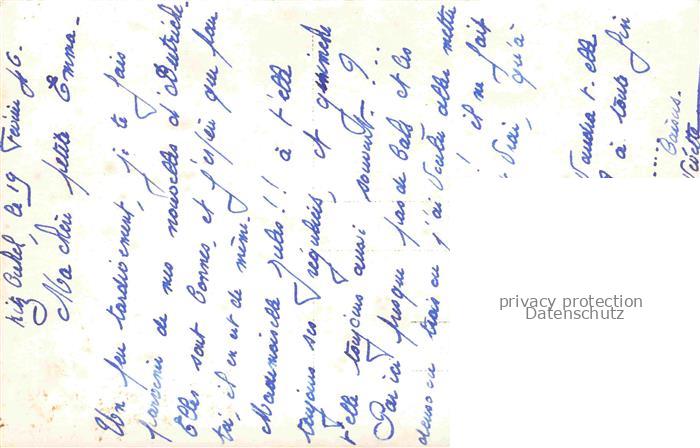 Kitzbühel, le 19 Février 46.
Ma chère petite Emma.
Un peu tardivement, je te fais
parvenir de mes nouvelles d'Autriche.
Elles sont bonnes, et j'espère que pour
toi, il en est de même.
Mademoiselle Jules!! à t'elle
toujours ses régulières, et
t'elle toujours aussi souvent?...
Par ici presque pas de bals et les
deux ou trois ou j'ai voulu aller mettre
! il ne fait
vrai, qu'à
t-elle
à toute fin
.... 
privacy protection
Datenschutz